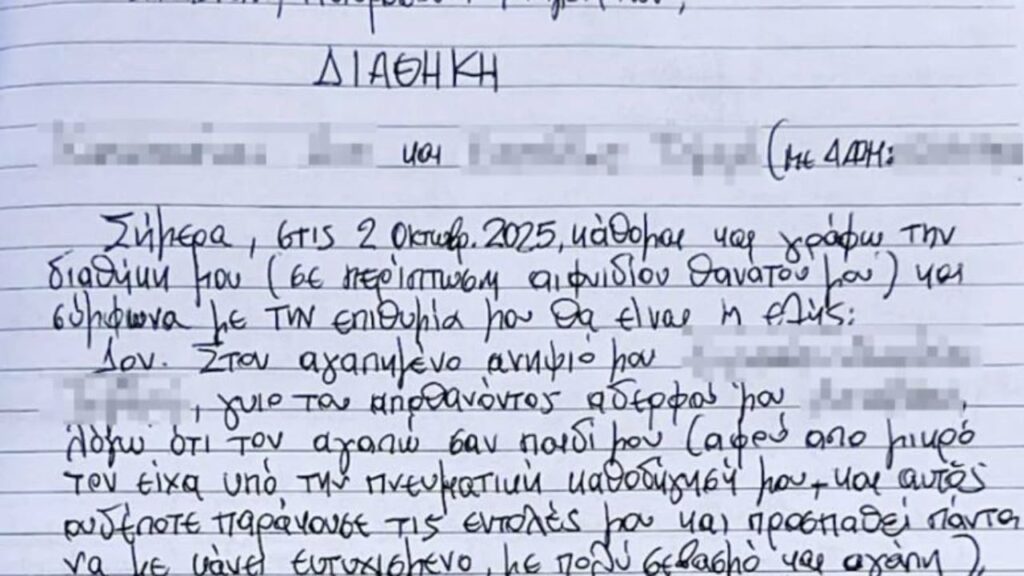 ΔΙΑΘΗΚΗ
και (με ΑΦΜ:
Σήμερα, στις 2 Οκτωβρ. 2025, κάθομαι και γράφω την
διαθήκη μου (σε περίπτωση αιφνιδίου θανάτου μου) και
σύμφωνα με την επιθυμία μου θα είναι η εξής:
1ον. Στον αγαπημένο ανηψιό μου
, γυιο του αποθανόντος αδερφού μου
λόγω ότι τον αγαπώ σαν παιδί μου (αφού απο μικρό
τον είχα υπό την πνευματική καθοδήγησή μου, και αυτός
ουδέποτε παράκουσε τις εντολές μου και προσπαθεί πάντα
να με κάνει ευτυχισμένο, με πολύ σεβασμό και αγάπη),